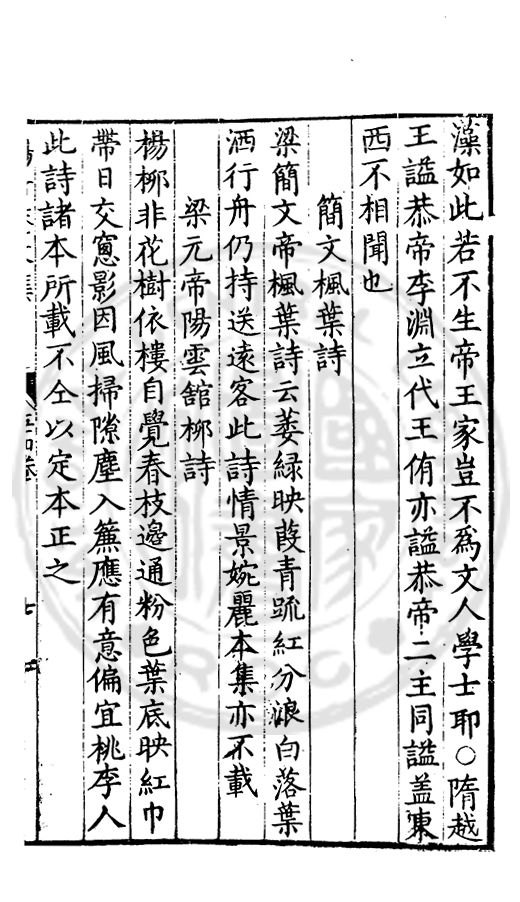 藻如此若不生帝王家豈不爲文人學士耶○隋越
王謚恭帝李淵立代王侑亦謚恭帝二主同謚盖東
西不相聞也
簡文楓葉詩
梁簡文帝楓葉詩云萎緑映葭青踈紅分浪白落葉
洒行舟仍持送遠客此詩情景婉麗本集亦不載
梁元帝陽雲舘桞詩
楊桞非花樹依樓自覺春枝邊通粉色葉底映紅巾
帶日交窻影因風掃隙塵入簾應有意偏宜桃李人
此詩諸本所載不仝以定本正之